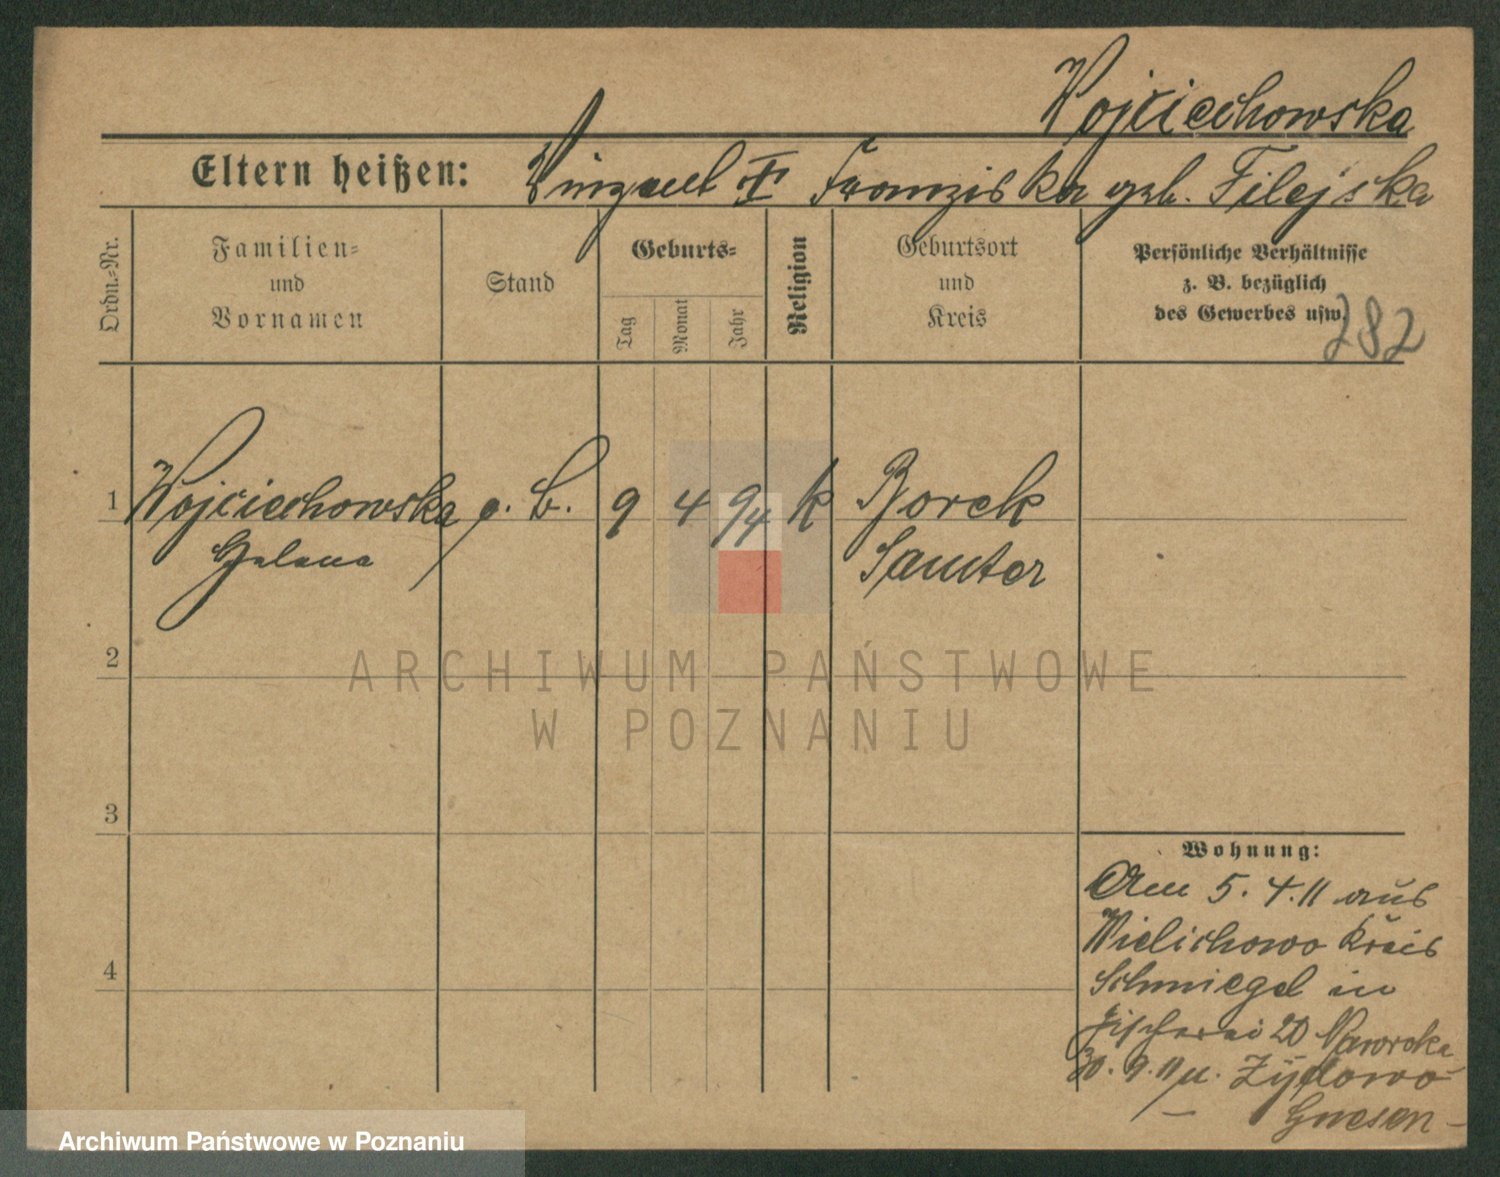 Wojciechowska
Eltern heißen: Vinzent † Franziska geb. Filejska
Ordn.=Nr.
Familien=
und
Vornamen
Stand
Geburts=
Tag
Monat
Jahr
Religion
Geburtsort
und
Kreis
Persönliche Verhältnisse
z. B. bezüglich
des Gewerbes usw.
282
1 Wojciechowska o. B. 9 4 94 k Borek
Helena Samter
2
3
4
Wohnung:
Am 5. 4. 11 aus
Wielichowo Kreis
Schmiegel in
Fischerei 20 Naworska
30. 9. 11 n. Żydowo
Gnesen
ARCHIWUM PAŃSTWOWE
W POZNANIU
Archiwum Państwowe w Poznaniu